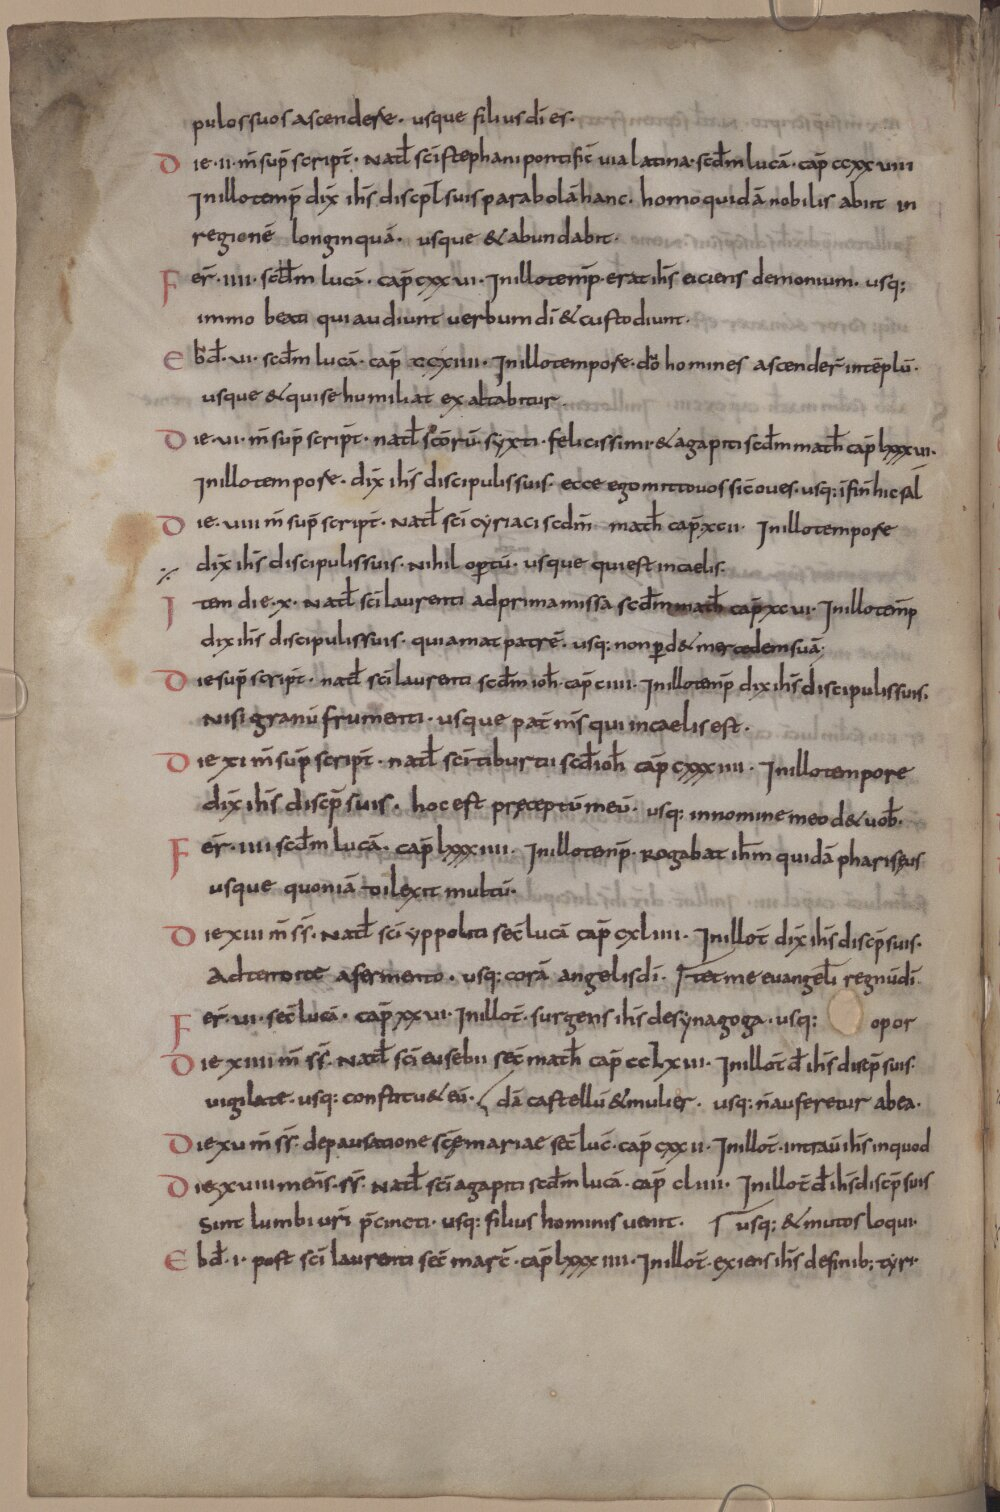 pulos suos ascendere. usque filius dī es.
Die .ii. m̄ sup̄ script̄. Natl̄ sc̄i stephani pontific̄ uia latina. scd̄m lucā. cap̄ ccxxviii
In illo temp̄ dix̄ ih̄s discipl̄ suis parabolā hanc. homo quidā nobilis abiit in
regionē longinquā. usque & abundabit.
Fer̄. iiii. scd̄m lucā. cap̄ cxxvi. In illo temp̄. erat ih̄s eiciens demonium. usq;
immo beati qui audiunt uerbum dī & custodiunt.
Ebd̄. vi. scd̄m lucā. cap̄ ccxiiii. In illo tempore. duo homines ascender̄ in tēplū.
usque & qui se humiliat exaltabitur.
Die. vi. m̄ sup̄ script̄. natl̄ sc̄orū. syxti. felicissimi. & agapiti scd̄m math̄ cap̄ lxxxvi.
In illo tempore. dix̄ ih̄s discipulis suis. ecce ego mitto uos sic oues. usq; ī fin̄ hic sal
Die. viii m̄ sup̄ script̄. Natl̄ sc̄i cyriaci scdm̄ math̄ cap̄ xcii. In illo tempore
dix̄ ih̄s discipulis suis. nihil op̄tū. usque qui est in caelis.
Item die. x. Natl̄ sc̄i laurenti ad prima missa scd̄m math̄ cap̄ xcvi. In illo temp̄
dix ih̄s discipulis suis. qui amat patrē. usq; non p̄d& mercedem suā;
Die sup̄ script̄. natl̄ sc̄i laurenti scd̄m ioh̄. cap̄ ciiii. In illo temp̄ dix ih̄s discipulis suis.
Nisi granū frumenti. usque pat̄ m̄s qui in caelis est.
Die xi m̄ sup̄ script̄. natl̄ sc̄i tiburtii scd̄ ioh̄ cap̄ cxxxiiii. In illo tenpore
dix̄ ih̄s discp̄ suis. hoc est pręceptū meū. usq; in nomine meo d& uob̄.
Fer̄. iiii scd̄m lucā. cap̄ lxxxiiii. In illo temp̄. Rogabat ih̄m quidā phariseus
usque quoniā dilexit multū.
Die xiii m̄ ss̄. Natl̄ sc̄i yppoliti sec̄ lucā cap̄ cxliiii. In illot̄ dix̄ ih̄s discp̄ suis.
Adtendite a fermento. usq; corā angelis dī. Γtet me euangeli regnū dī.
Fer̄. vi. sec̄ lucā. cap̄ xxvi. In illot̄. surgens ih̄s de synagoga. usq; opor
Die xiiii m̄ ss̄. Natl̄ sc̄i eusebii sec̄ math̄ cap̄ cclxiii. In illot̄ d̄ ih̄s discp̄ suis.
uigilate. usq; constitu& eū. dā castellū & mulier. usq; n̄ auferetur abea.
Die xv m̄ ss̄. de pausatione sc̄ę mariae sec̄ luc̄. cap̄ cxxii. In illot̄. intrau̅ ih̄s in quod
Die xviii mens̄. ss̄. Natl̄ sc̄i agapiti scd̄m lucā. cap̄ cliiii. In illot̄ d̄ ih̄s discp̄ suis
Sint lumbi ur̄i p̄cincti. usq; filius hominis uenit. Γ usq; & mutos loqui.
Ebd̄. i. post sc̄i laurenti sec̄ marc̄. cap̄ lxxxiiii. In illot̄. exiens ih̄s de finib; tyri.